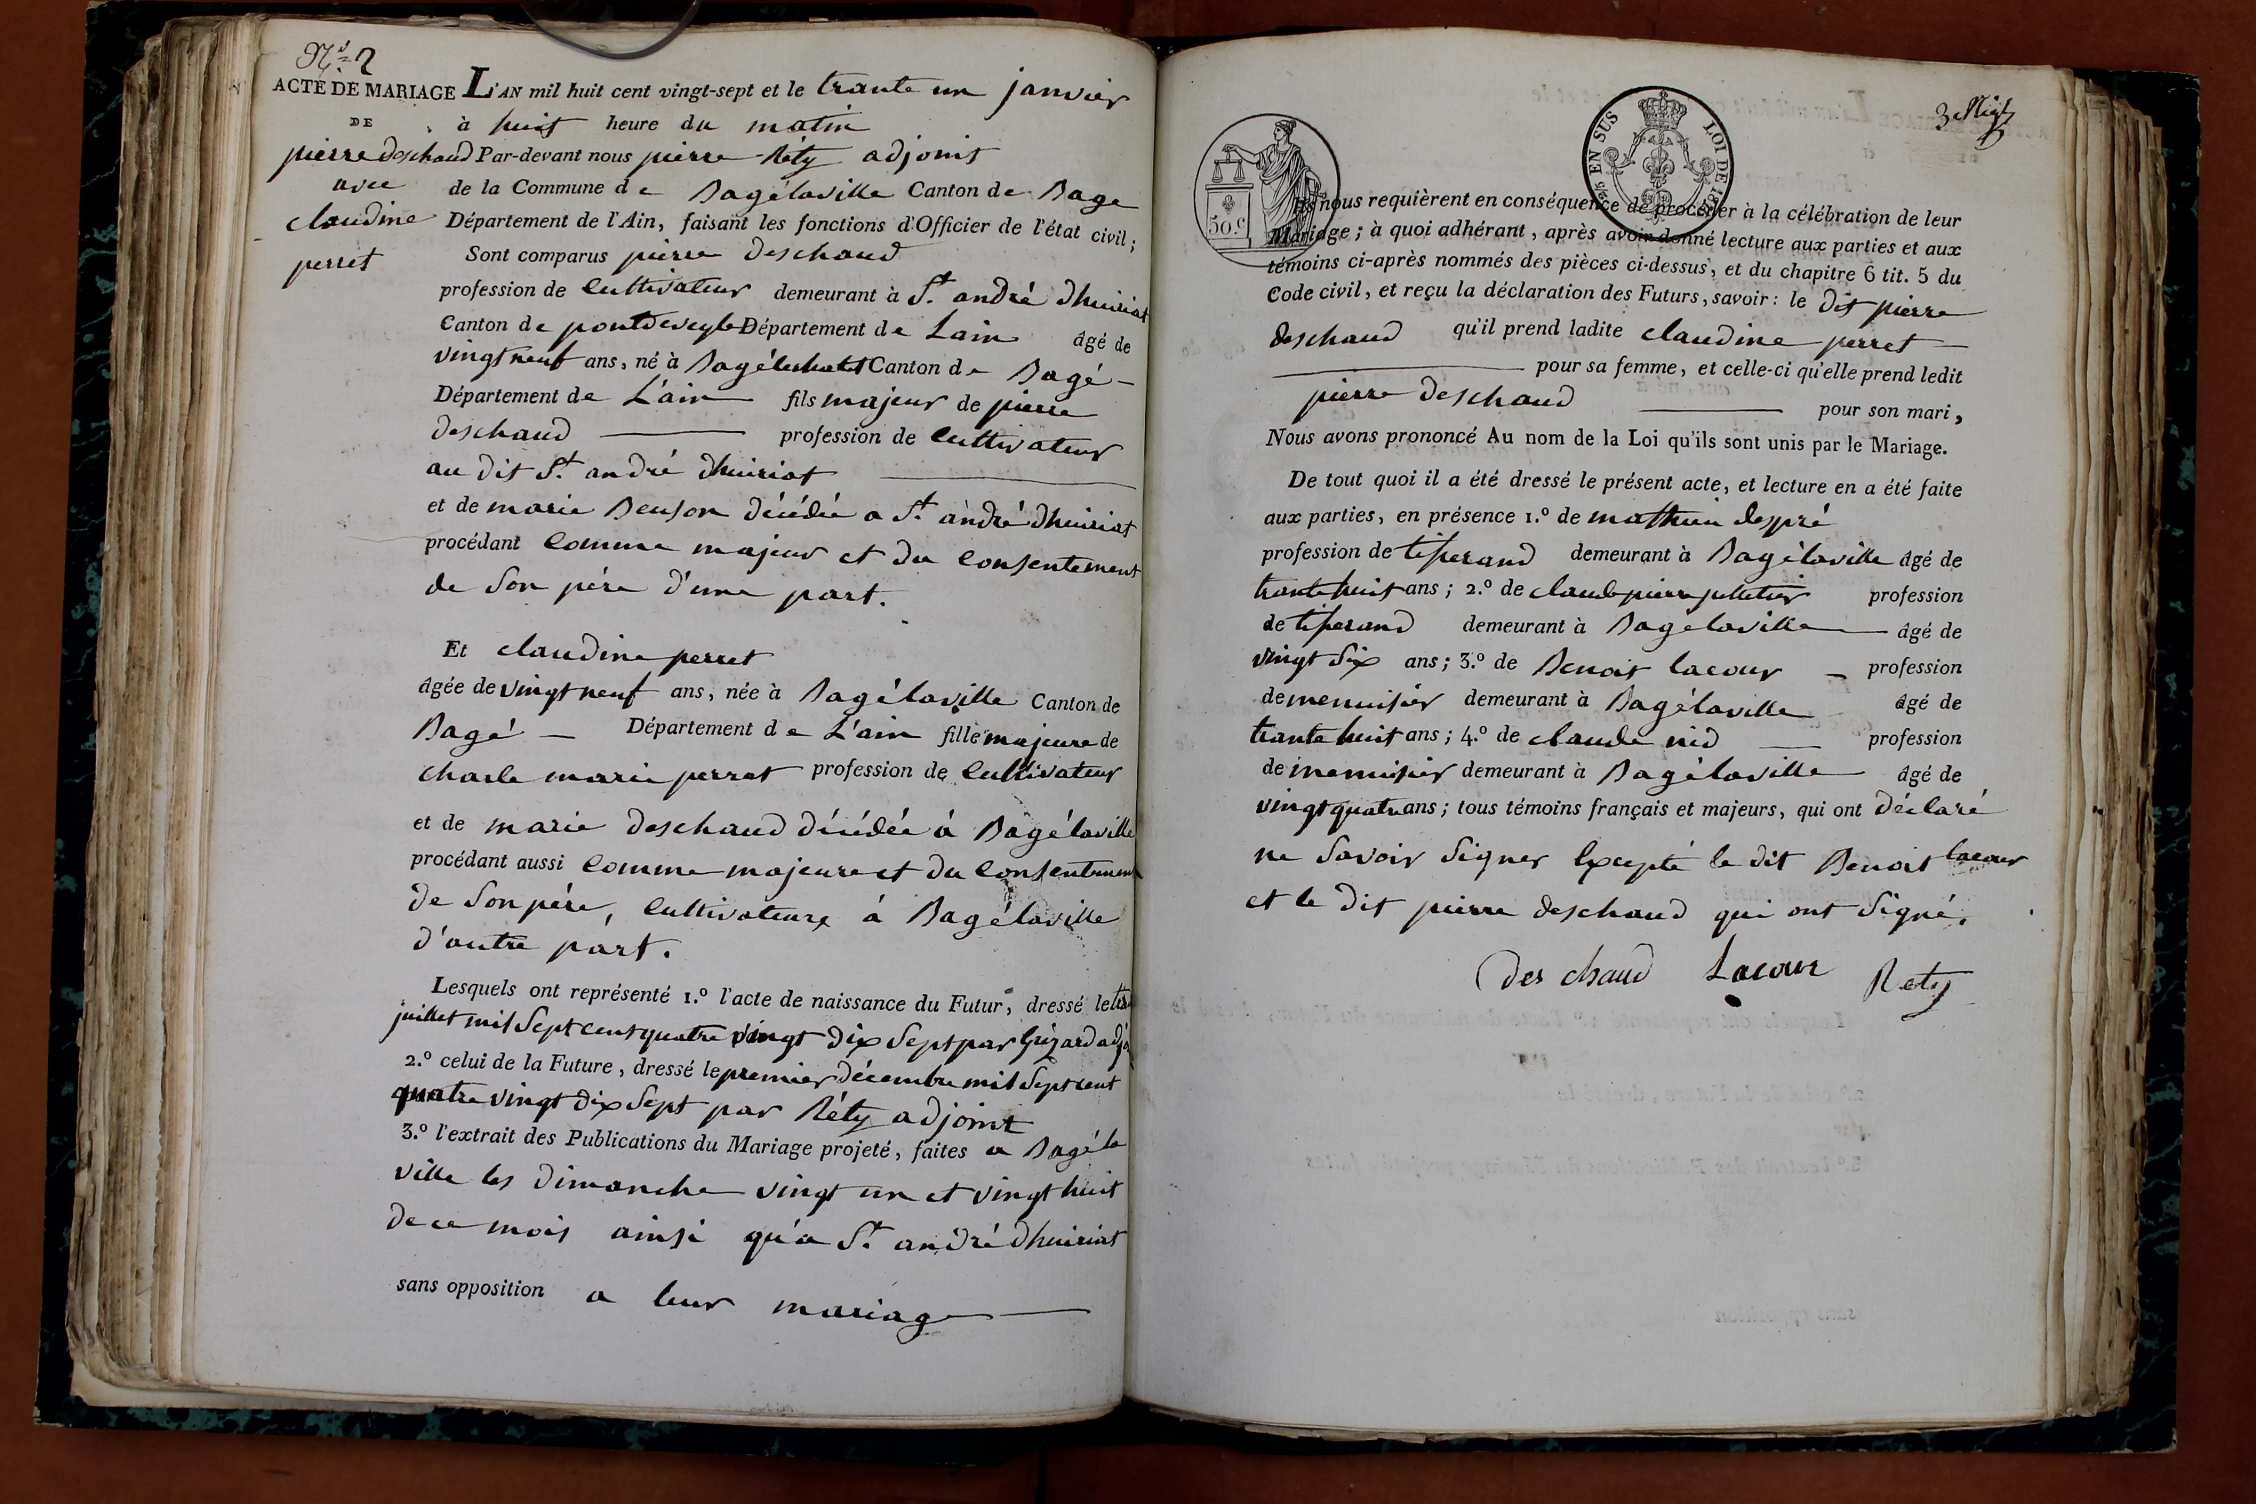 N.° 2
ACTE DE MARIAGE
DE
pierre deschaud
avec
claudine
perret
L'AN mil huit cent vingt-sept et le trante un janvier
à huit heure du matin
Par-devant nous pierre Réty adjoint
de la Commune de Bagélaville Canton de Bage
Département de l'Ain, faisant les fonctions d'Officier de l'état civil ;
Sont comparus pierre deschaud
profession de Cultivateur demeurant à St. andré dhuiriat
Canton de pontdeveyle Département de Lain âgé de
vingt neuf ans, né à Bagélechatel Canton de Bagé
Département de L'ain fils majeur de pierre
deschaud profession de Cultivateur
au dit St. andré dhuiriat
et de marie Beuson décédée a St. andré dhuiriat
procédant Comme majeur et du Consentement
de Son père d'une part.
Et claudine perret
âgée de vingt neuf ans, née à Bagélaville Canton de
Bagé Département de L'ain fille majeure de
charle marie perret profession de Cultivateur
et de marie deschaud décédée à Bagélaville
procédant aussi Comme majeure et du Consentement
de Son père, Cultivateurx á Bagélaville
d'autre part.
Lesquels ont représenté 1.° l'acte de naissance du Futur, dressé le
juillet mil Sept cent quatre vingt dix Sept par
2.° celui de la Future, dressé le premier décembre mil Sept cent
quatre vingt dix Sept par Réty adjoint
3.° l'extrait des Publications du Mariage projeté, faites a Bagéla
ville les dimanche vingt un et vingt huit
de ce mois ainsi qu'a St. andré dhuiriat
sans opposition a leur mariage
50.c
EN SUS
LOI DE
Ils nous requièrent en conséquence de procéder à la célébration de leur
Mariage ; à quoi adhérant, après avoir donné lecture aux parties et aux
témoins ci-après nommés des pièces ci-dessus, et du chapitre 6 tit. 5 du
Code civil, et reçu la déclaration des Futurs, savoir : le dit pierre
deschaud qu'il prend ladite claudine perret
pour sa femme, et celle-ci qu'elle prend ledit
pierre deschaud pour son mari,
Nous avons prononcé Au nom de la Loi qu'ils sont unis par le Mariage.
De tout quoi il a été dressé le présent acte, et lecture en a été faite
aux parties, en présence 1.° de mathieu despré
profession de tiserand demeurant à Bagélaville âgé de
trante huit ans ; 2.° de claude pierre profession
de tiserand demeurant à Bagelaville âgé de
vingt Six ans ; 3.° de Benoit lacour profession
de menuisier demeurant à Bagélaville âgé de
trante huit ans ; 4.° de claude nid profession
de menuisier demeurant à Bagélaville âgé de
vingt quatre ans ; tous témoins français et majeurs, qui ont déclaré
ne Savoir Signer Excepté le dit Benoit lacour
et le dit pierre deschaud qui ont Signé.
des chaud Lacour Rety